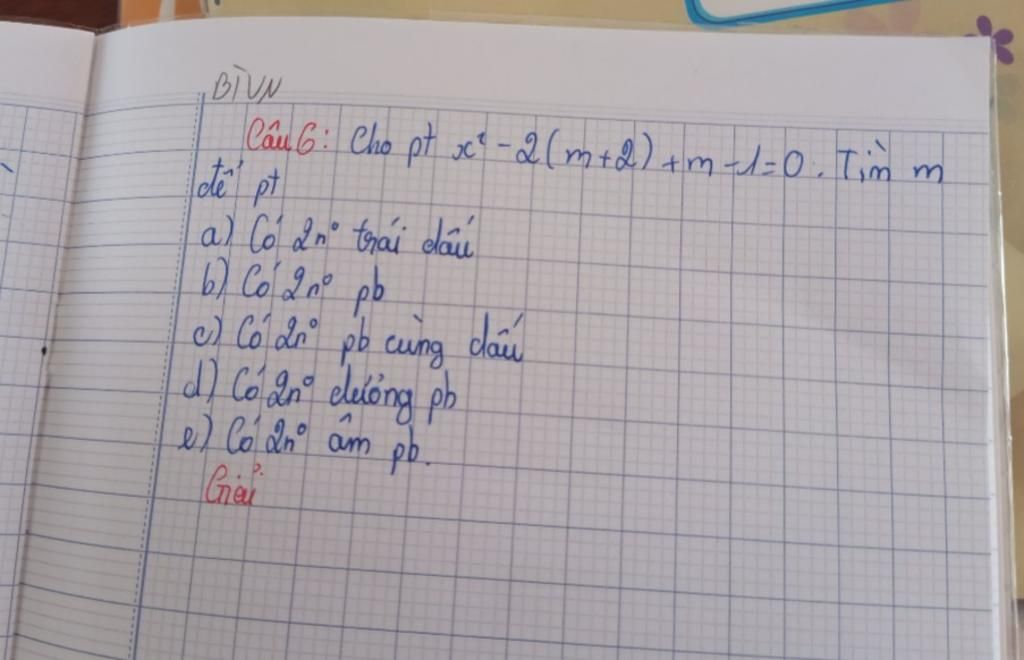 BTVN
Câu 6: Cho pt x² - 2(m+2) + m - 1 = 0. Tìm m
để pt
a) Có 2n° trái dấu
b) Có 2n° pb
c) Có 2n° pb cùng dấu
d) Có 2n° dương pb
e) Có 2n° âm pb.
Giải